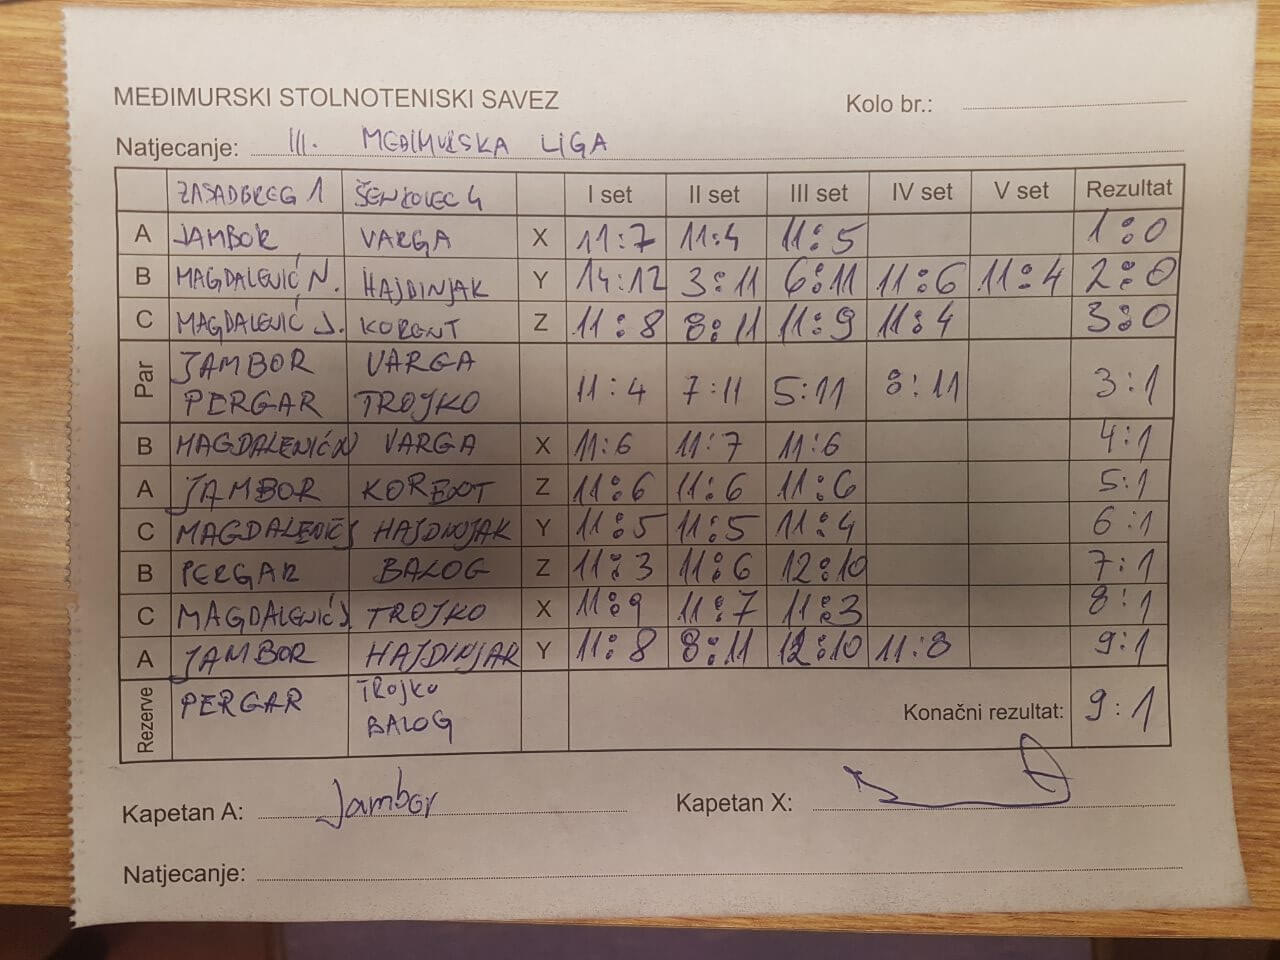 MEĐIMURSKI STOLNOTENISKI SAVEZ
Kolo br.:
Natjecanje: III. MEĐIMURSKA LIGA
ZASADBREG 1 ŠENKOVEC 4 I set II set III set IV set V set Rezultat
A JAMBOR VARGA X 11:7 11:4 11:5 1:0
B MAGDALENIĆ N. HAJDINJAK Y 14:12 3:11 6:11 11:6 11:4 2:0
C MAGDALENIĆ J. KORENT Z 11:8 8:11 11:9 11:4 3:0
Par JAMBOR VARGA
PERGAR TROJKO 11:4 7:11 5:11 8:11 3:1
B MAGDALENIĆ N VARGA X 11:6 11:7 11:6 4:1
A JAMBOR KORENT Z 11:6 11:6 11:6 5:1
C MAGDALENIĆ J HAJDINJAK Y 11:5 11:5 11:4 6:1
B PERGAR BALOG Z 11:3 11:6 12:10 7:1
C MAGDALENIĆ J TROJKO X 11:9 11:7 11:3 8:1
A JAMBOR HAJDINJAK Y 11:8 8:11 12:10 11:8 9:1
Rezerve PERGAR TROJKO
BALOG
Konačni rezultat: 9:1
Kapetan A: Jambor Kapetan X:
Natjecanje: